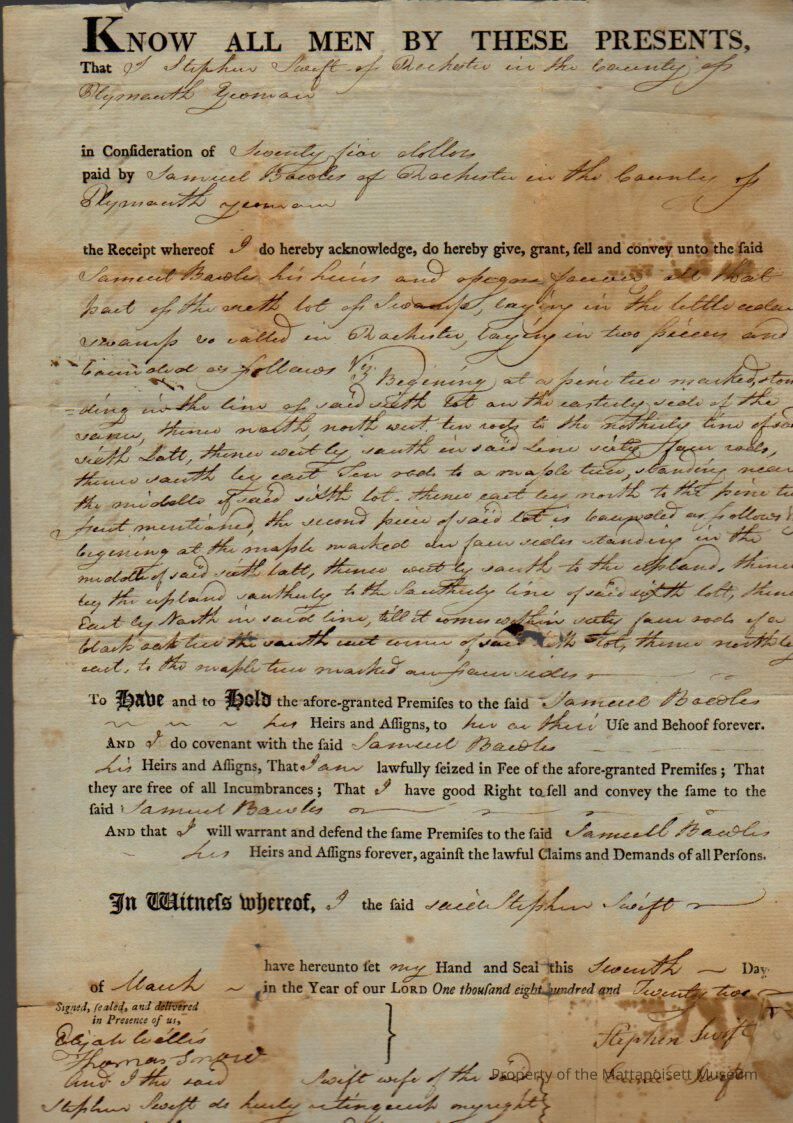 KNOW ALL MEN BY THESE PRESENTS,
That I Stephen Swift of Rochester in the County of
Plymouth Yeoman
in Conſideration of Seventy five dollors
paid by Samuel Bawles of Rochester in the County of
Plymouth yeoman
the Receipt whereof I do hereby acknowledge, do hereby give, grant, ſell and convey unto the ſaid
Samuel Bawles his heirs and forever all that
part of the lot of Swamp, laying in the little cedar
swamp so called in Rochester, laying in two pieces and
bounded as follows Viz. Begining at a pine tree marked, stan
=ding in the line of said sixth Lot on the easterly side of the
same, thence north, north west, ten rods to the northerly line of said
sixth Lott, thence west by south in said Line sixty four rods,
thence south by east Ten rods to a maple tree, standing near
the middle of said sixth lot. thence east by north to the pine tree
first mentioned, the second piece of said lot is bounded as follows
begining at the maple marked on four sides standing in the
middle of said sixth lott, thence west by south to the upland, thence
by the upland southerly to the Southerly line of said sixth lott, thence
East by North in said line, till it comes within sixty four rods of a
black oak tree the south east corner of said sixth Lot, thence north by
east, to the maple tree marked on four sides
To Have and to Hold the afore-granted Premiſes to the ſaid Samuel Bawles
his Heirs and Aſſigns, to her or their Uſe and Behoof forever.
AND I do covenant with the ſaid Samuel Bawles
his Heirs and Aſſigns, That I am lawfully ſeized in Fee of the afore-granted Premiſes ; That
they are free of all Incumbrances ; That I have good Right to ſell and convey the ſame to the
ſaid Samuel Bawles
AND that I will warrant and defend the ſame Premiſes to the ſaid Samuell Bawles
his Heirs and Aſſigns forever, againſt the lawful Claims and Demands of all Perſons.
In Witneſs whereof, I the ſaid said Stephen Swift
have hereunto ſet my Hand and Seal this Seventh Day
of March in the Year of our LORD One thouſand eight hundred and Twenty two
Signed, ſealed, and delivered
in Preſence of us,
Elijah Willis
Thomas Snow
Stephen Swift
Swift
And I the said Swift wife of the said
Stephen Swift do herby relinquish my right
Property of the Mattapoisett Museum